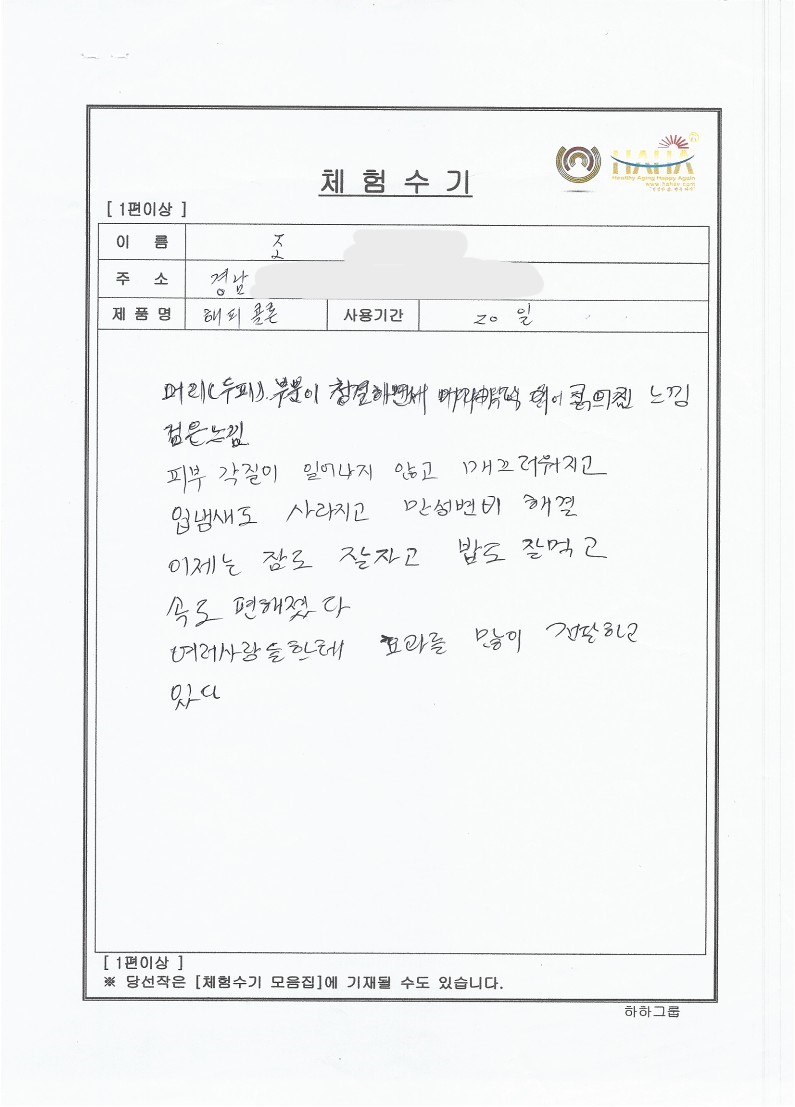 체 험 수 기
HAHA
Healthy Aging Happy Again
[ 1편이상 ]
이 름 조
주 소 경남
제 품 명 해피콜론 사용기간 20 일
머리(두피). 부분이 청결해면서 느낌
검은느낌
피부 각질이 일어나지 않고 매끄러워지고
입냄새도 사라지고 만성변비 해결
이제는 잠도 잘자고 밥도 잘먹고
속도 편해졌다
여러사람들한테 효과를 많이 전달하고
있다
[ 1편이상 ]
※ 당선작은 [체험수기 모음집]에 기재될 수도 있습니다.
하하그룹